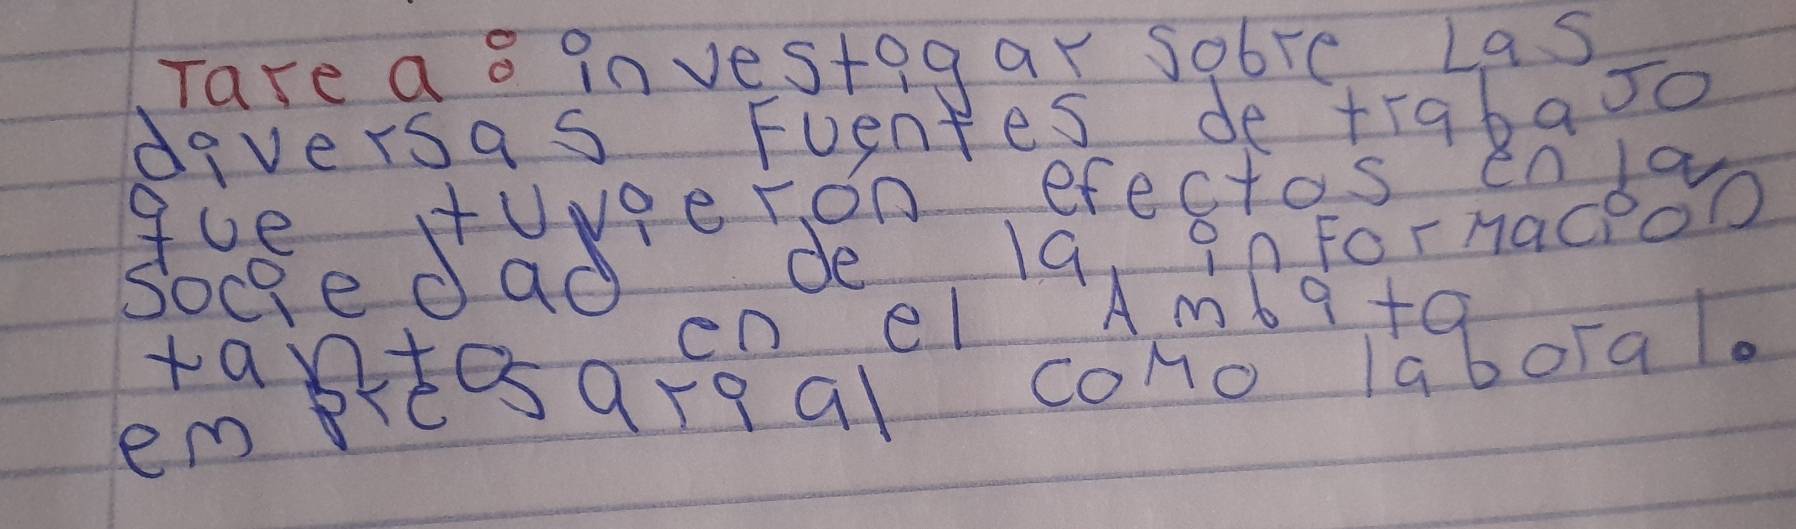 Tarea: investigar sobre Las
diversas Fuentes de trabaJo
que tuvieron efectos en la
sociedad de la informacion
tanto en el Ambito
empresarial como laboral.